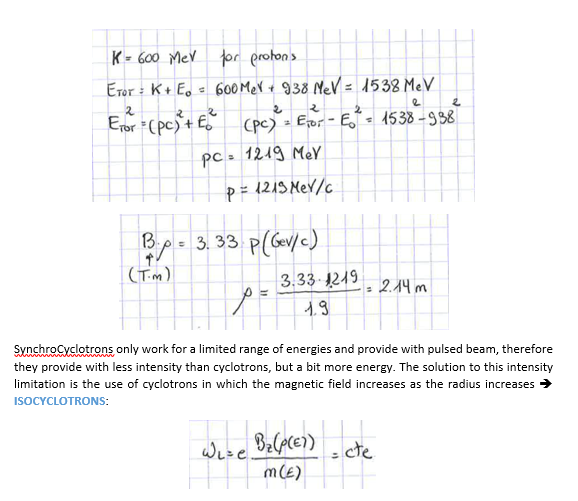 K = 600 MeV for protons
E_TOT = K + E_0 = 600 MeV + 938 MeV = 1538 MeV
E_TOT^2 = (pc)^2 + E_0^2 (pc)^2 = E_TOT^2 - E_0^2 = 1538^2 - 938^2
pc = 1219 MeV
p = 1219 MeV/c
B·ρ = 3.33·p (GeV/c)
↑
(T·m)
ρ = 3.33·1.219 / 1.9 = 2.14 m
SynchroCyclotrons only work for a limited range of energies and provide with pulsed beam, therefore
they provide with less intensity than cyclotrons, but a bit more energy. The solution to this intensity
limitation is the use of cyclotrons in which the magnetic field increases as the radius increases →
ISOCYCLOTRONS:
ω_L = e B_z(ρ(E)) / m(E) = cte